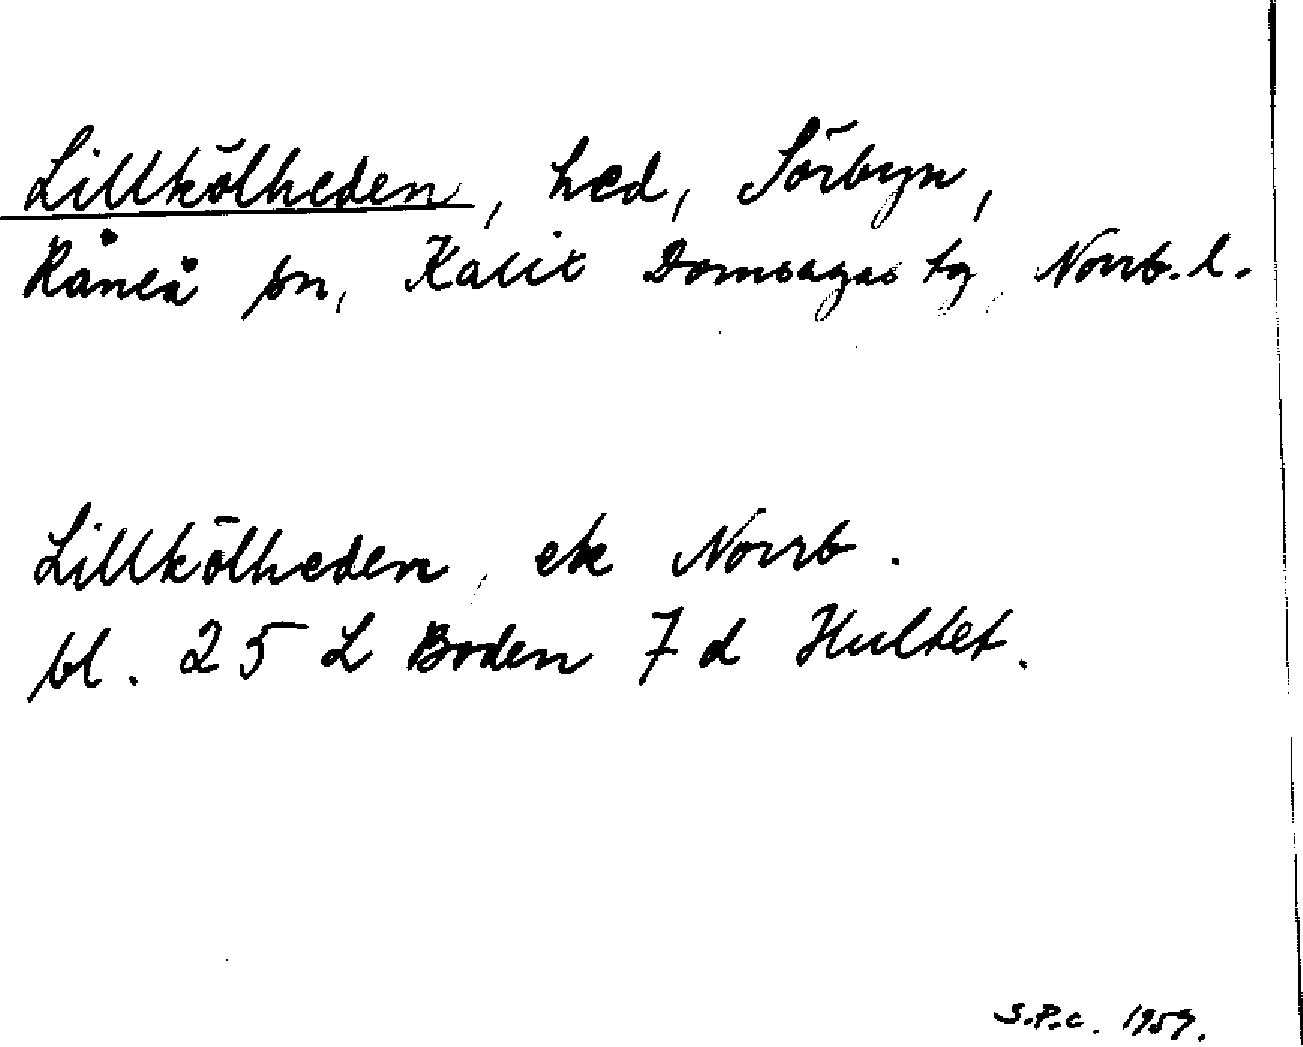 Lillkölheden, hed, Sörbyn,
Råneå sn, Kalix Domsagas tg, Norrb. l.
Lillkölheden, ek Norrb.
bl. 25 L Boden 7 d Hultet.
S.P.c. 1959.